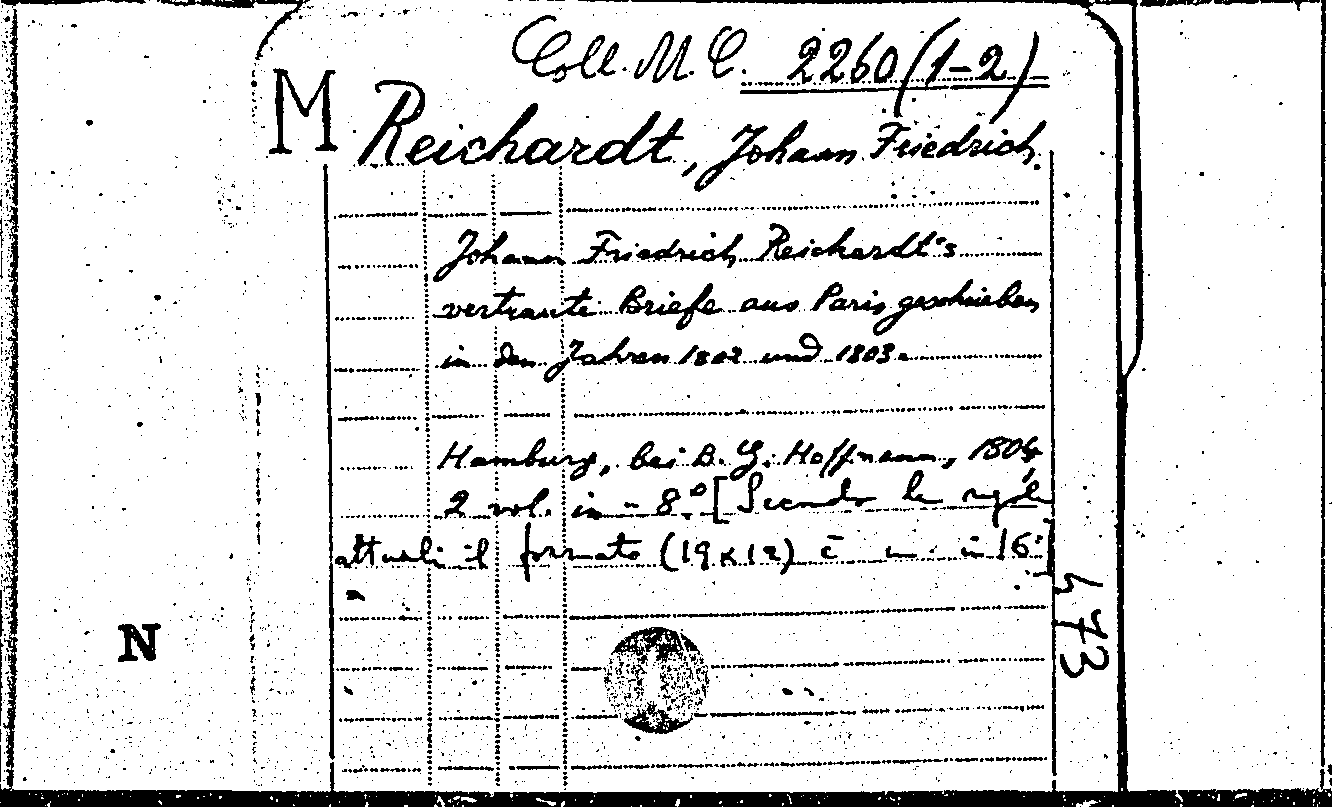 Coll. M. C. 2260 (1-2)
M Reichardt, Johann Friedrich.
Johann Friedrich Reichardt's
vertraute Briefe aus Paris geschrieben
in den Jahren 1802 und 1803.
Hamburg, bei B. G. Hoffmann, 1804
2 vol. in-8° [Secondo le regole
attuali il formato (19x12) è un in 16°]
473
N